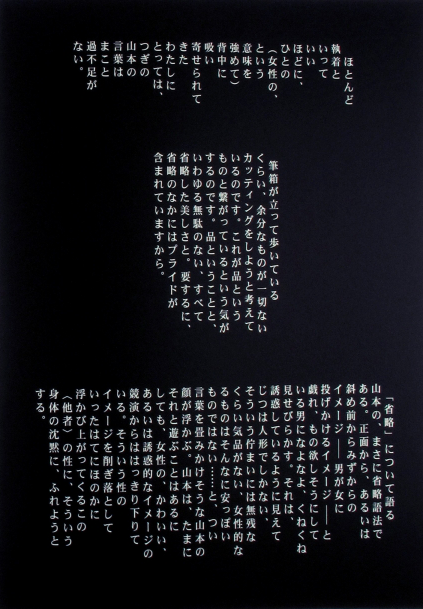 ほとんど
執着と
いって
いい
ほどに、
ひとの
(女性の、
という
意味を
強めて)
背中に
吸い
寄せられて
きた
わたしに
とっては、
つぎの
山本の
言葉は
まこと
過不足が
ない。
筆箱が立って歩いている
くらい、余分なものが一切ない
カッティングをしようと考えて
いるのです。これが品という
ものと繋がっているという気が
するのです。品ということと、
いわゆる無駄のない、すべて
省略した美しさと。要するに、
省略のなかにはプライドが
含まれていますから。
「省略」について語る
山本の、まさに省略語法で
ある。正面から、あるいは
斜め前からみずからの
イメージ──男が女に
投げかけるイメージ──と
戯れ、もの欲しそうにして
いる男になよなよ、くねくね
見せびらかす。それは、
誘惑しているように見えて
じつは人形でしかない、
そういう佇まいには無残な
くらい気品がない。女性的な
るものはそんなに安っぽい
ものではない……と、つい
言葉を畳みかけそうな山本の
顔が浮かぶ。山本は、たまに
それと遊ぶことはあるに
しても、女性の、かわいい、
あるいは誘惑的なイメージの
競演からはっきり下りて
いる。そういう性の
イメージを削ぎ落として
いったはてにほのかに
浮かび上がってくるこの
〈他者〉の性に、そういう
身体の沈黙に、ふれようと
する。